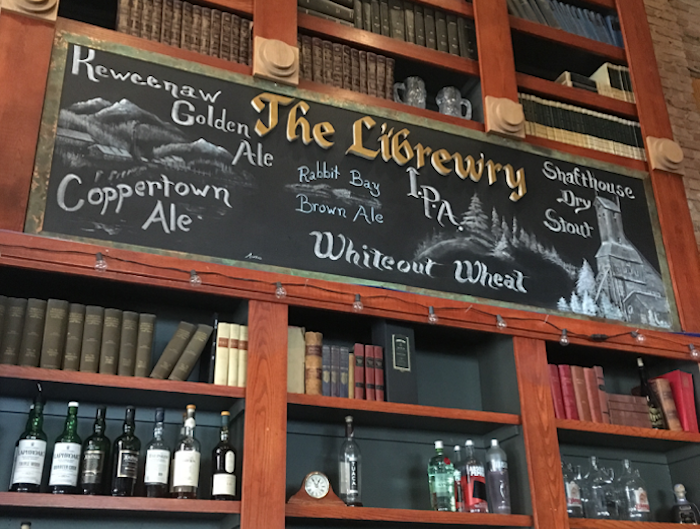 The Librewry
Keweenaw
Golden
Ale
Coppertown
Ale
Rabbit Bay
Brown Ale
I.P.A.
Whiteout Wheat
Shafthouse
Dry
Stout
LAPHROAIG
LAPHROAIG
TUACA